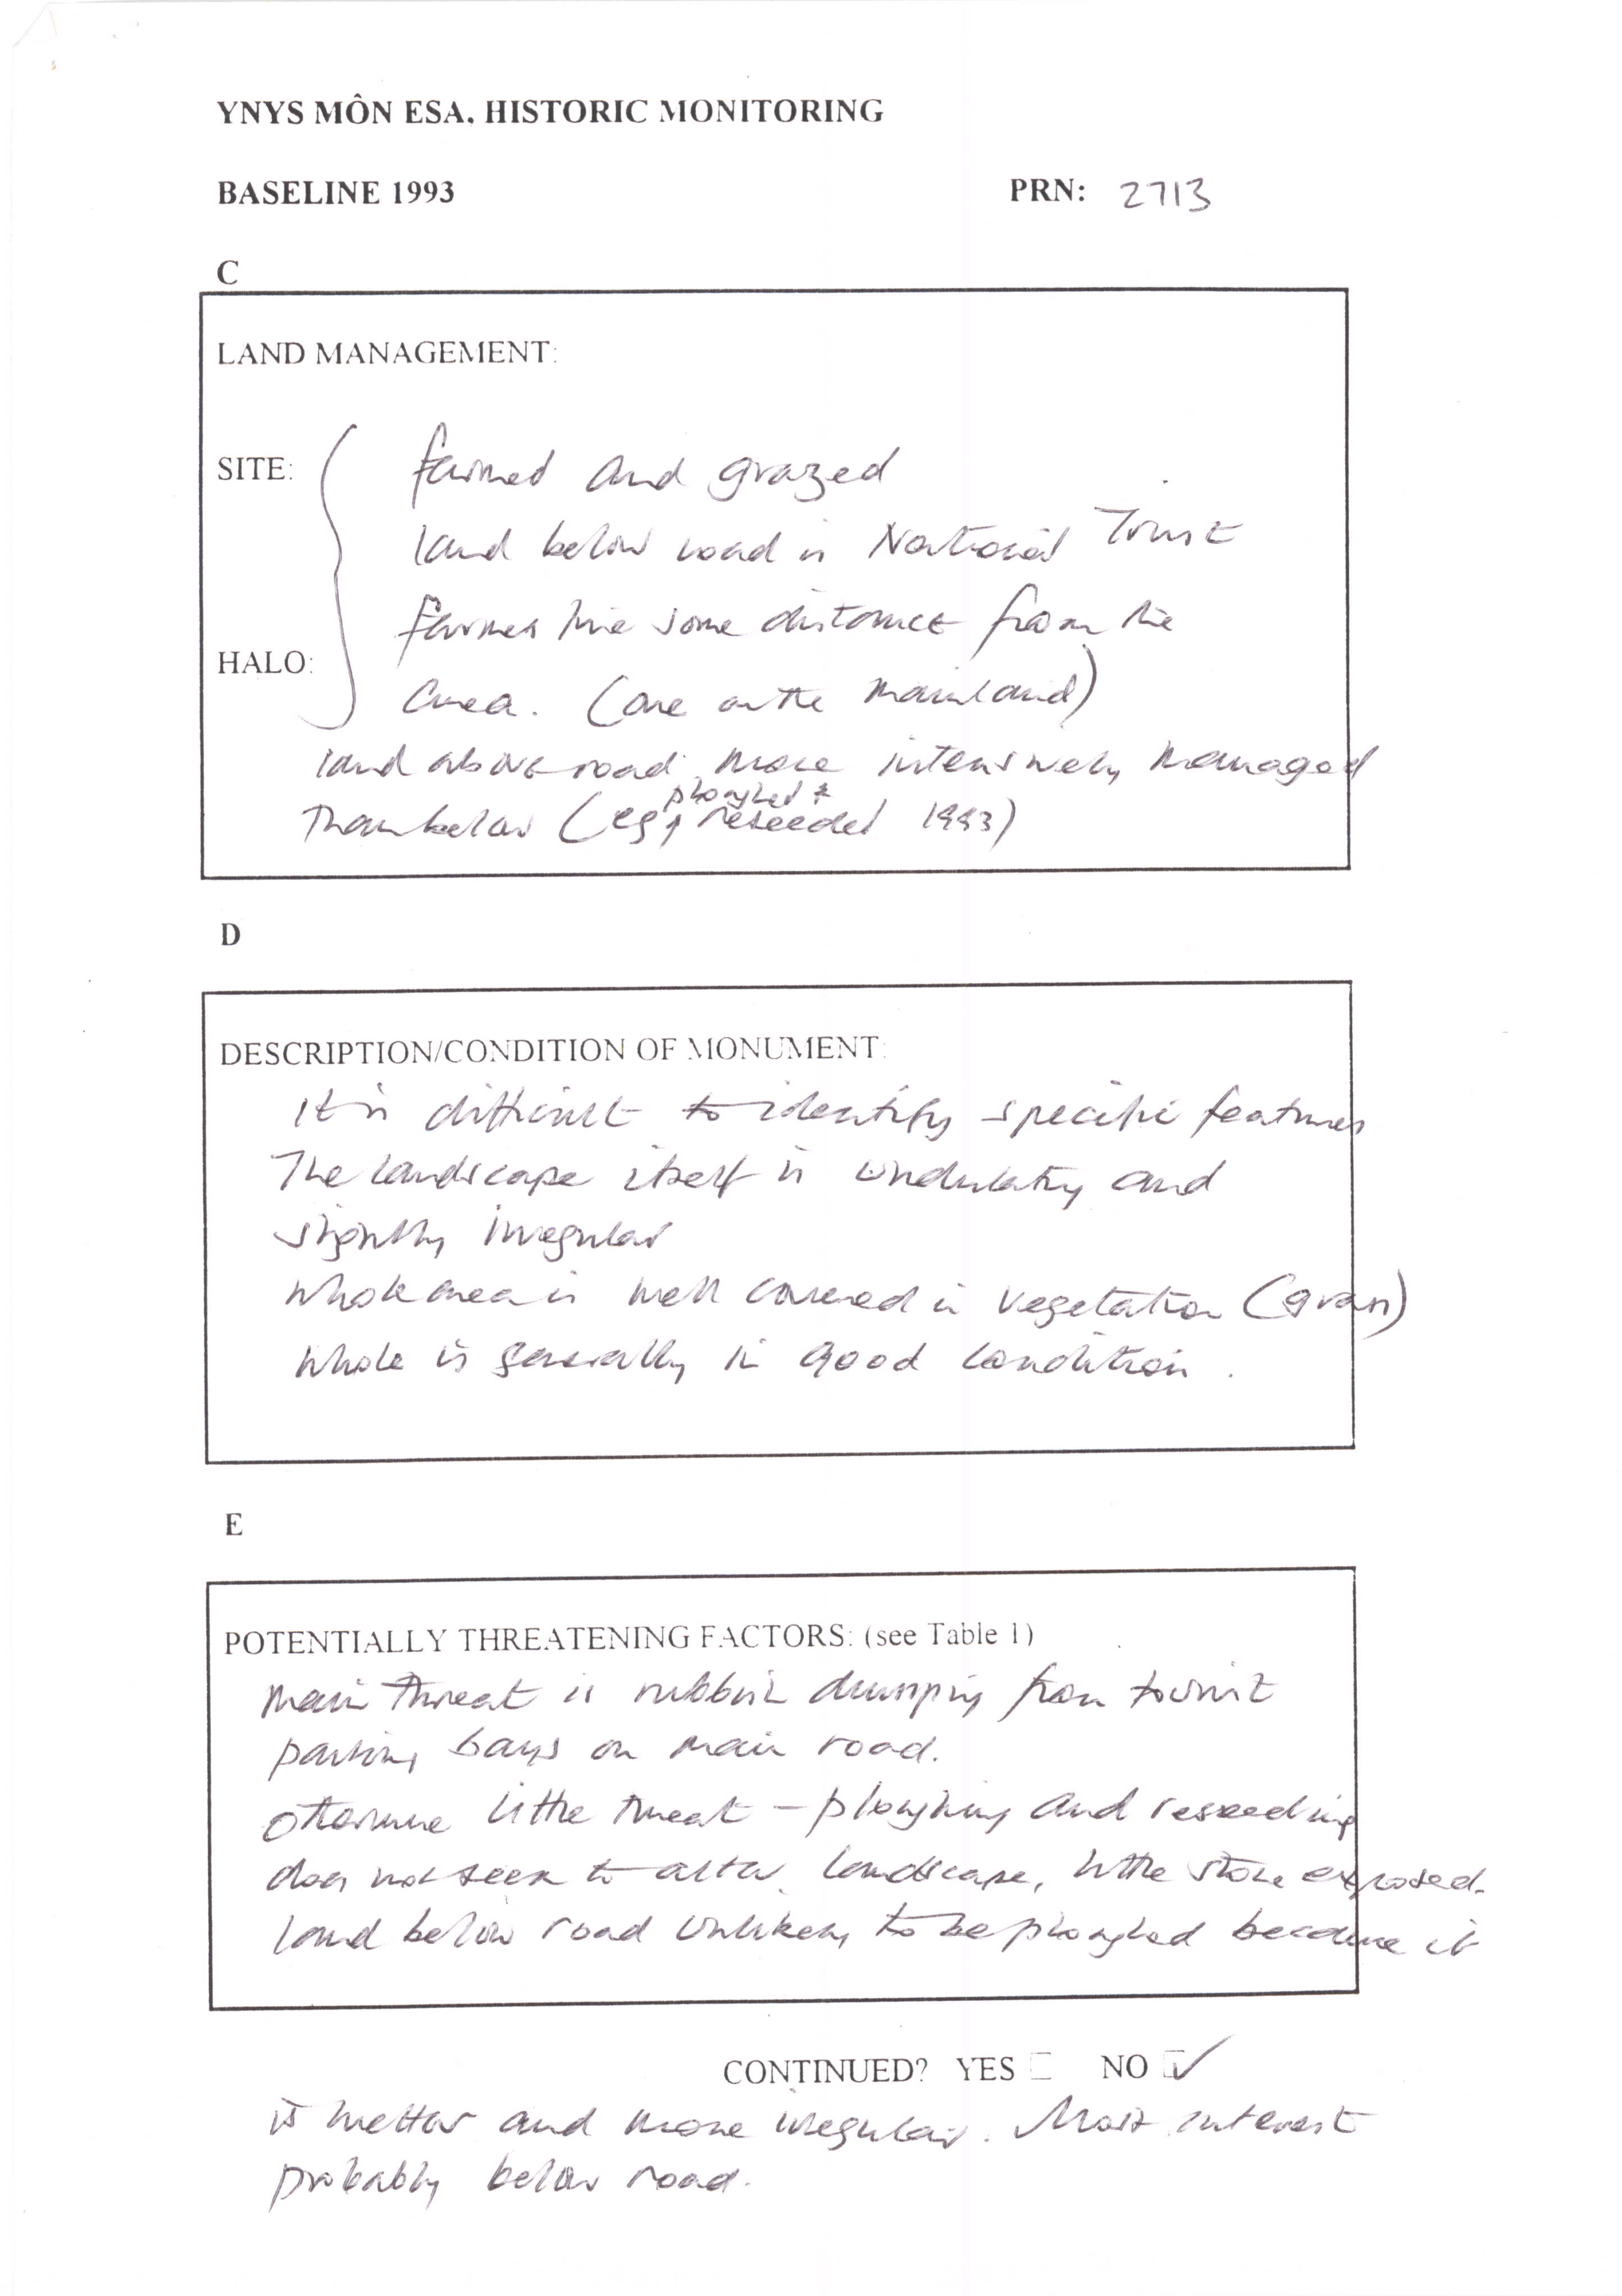 YNYS MÔN ESA. HISTORIC MONITORING
BASELINE 1993 PRN: 2713
C
LAND MANAGEMENT:
SITE: farmed and grazed
land below road is National Trust
farmers live some distance from the
HALO: area. (one on the mainland)
land above road more intensively managed
than below (eg ploughed & reseeded 1993)
D
DESCRIPTION/CONDITION OF MONUMENT:
It is difficult to identify specific features
The landscape itself is undulating and
slightly irregular
Whole area is well covered in vegetation (grass)
Whole is generally in good condition.
E
POTENTIALLY THREATENING FACTORS: (see Table 1)
Main threat is rubbish dumping from tourist
parking bays on main road.
Otherwise little threat - ploughing and reseeding
does not seem to alter landscape, little stone exposed.
Land below road unlikely to be ploughed because it
CONTINUED? YES NO ✓
is wetter and more irregular. Most interest
probably below road.